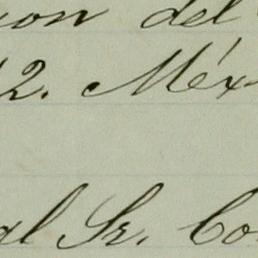 ion del
2. Méx
al Sr. Co